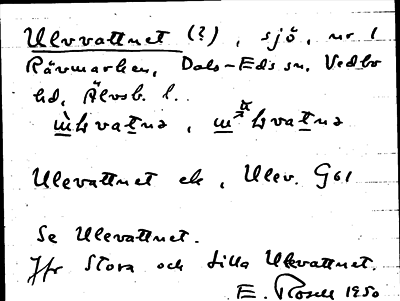 Ulvvattnet (?), sjö, nr 1
Rävmarken, Dals-Eds sn, Vedbo
hd, Älvsb. l.
Ulevattnet ek, Ulev. G61
Se Ulevattnet.
Jfr Stora och Lilla Ulevattnet.
E. 1950